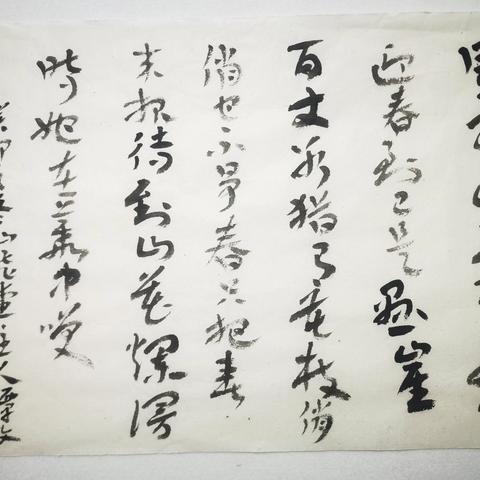 迎春到已是悬崖
百丈冰猶有花枝俏
俏也不争春只把春
来报待到山花爛漫
時她在叢中咲
主人